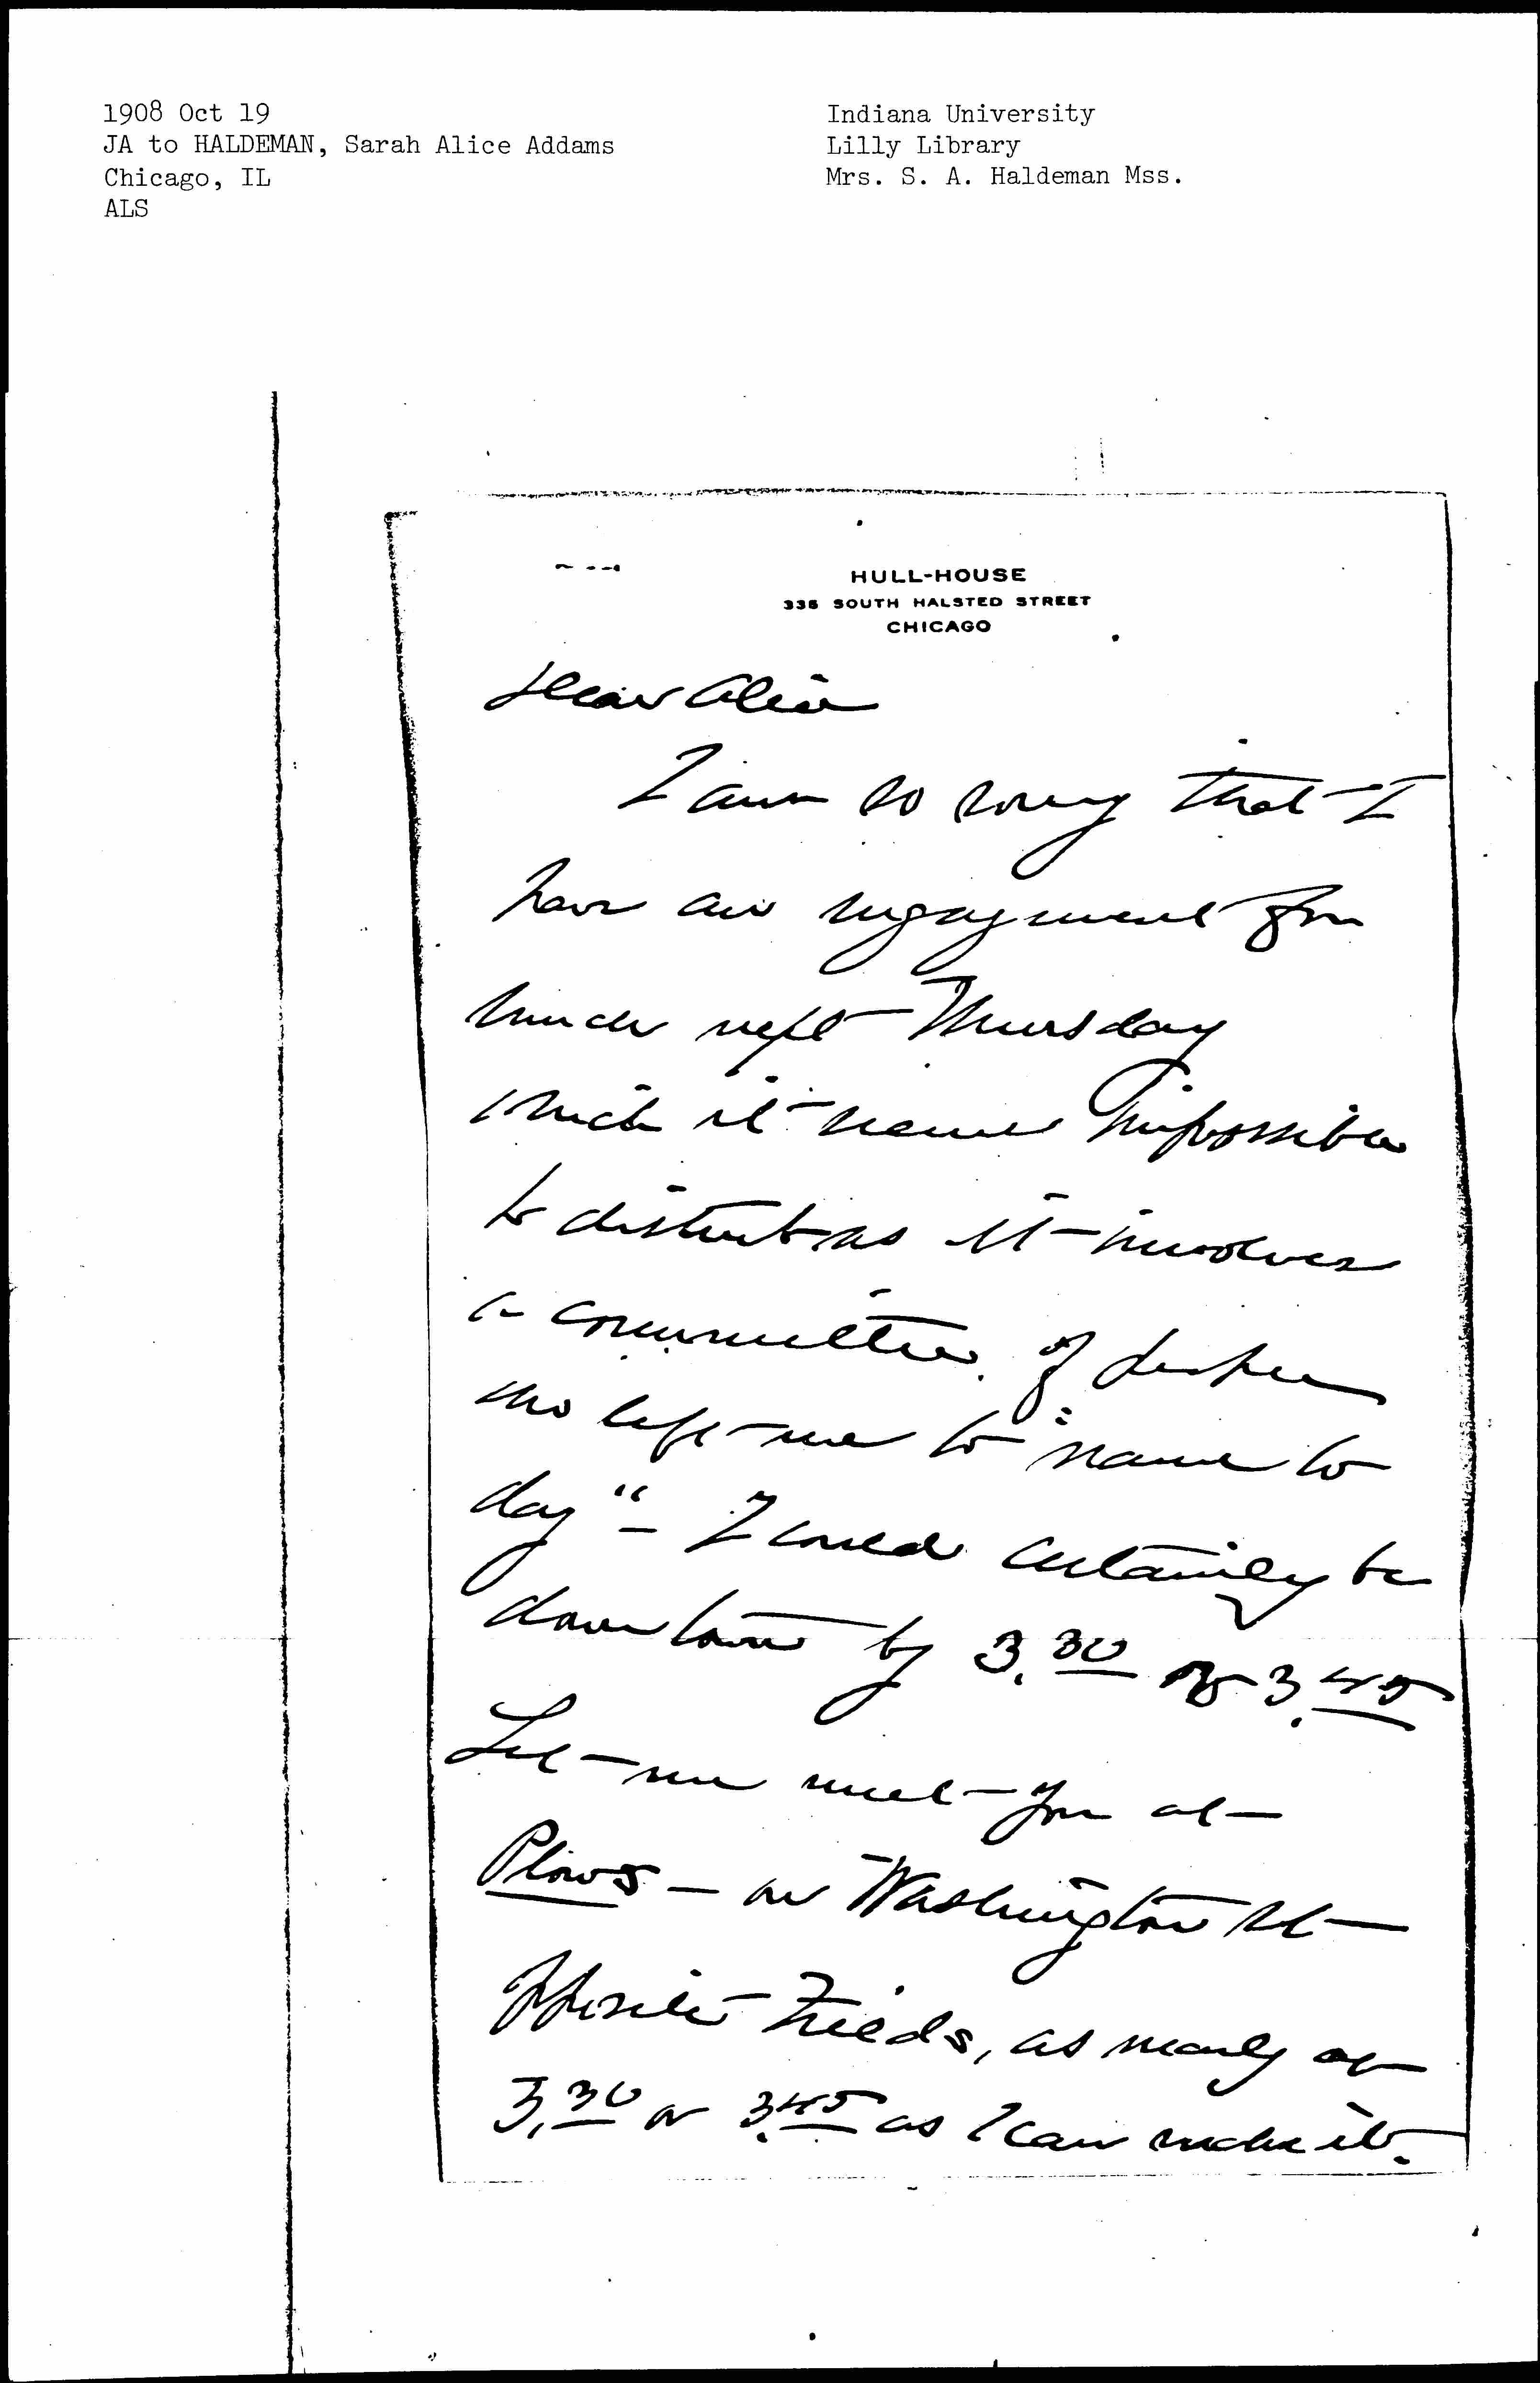 1908 Oct 19
JA to HALDEMAN, Sarah Alice Addams
Chicago, IL
ALS
Indiana University
Lilly Library
Mrs. S. A. Haldeman Mss.
HULL-HOUSE
335 SOUTH HALSTED STREET
CHICAGO
Dear Alice
I am so sorry that I
have an engagement for
lunch next Thursday
which it seems impossible
to disturb as it involves
a committee of
who left me to "name to
day" – I could certainly be
down town by 3.30 or 3.45
Let me meet you at
Plows – on Washington St
opposite Fields, as nearly at
3.30 or 3.45 as I can make it.